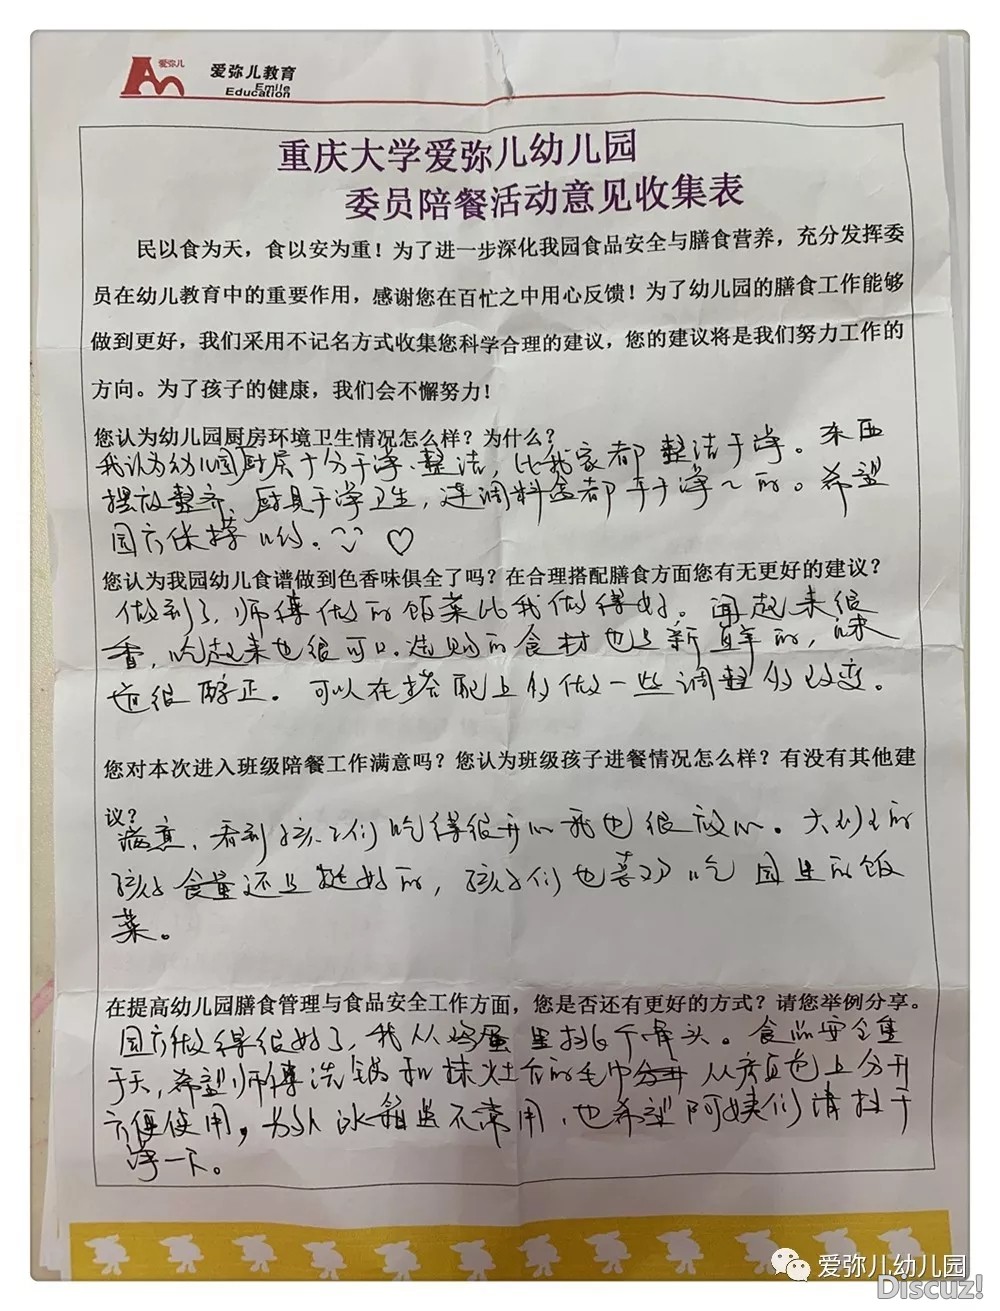 爱弥儿
爱弥儿教育
Emile
Education
重庆大学爱弥儿幼儿园
委员陪餐活动意见收集表
民以食为天，食以安为重！为了进一步深化我园食品安全与膳食营养，充分发挥委
员在幼儿教育中的重要作用，感谢您在百忙之中用心反馈！为了幼儿园的膳食工作能够
做到更好，我们采用不记名方式收集您科学合理的建议，您的建议将是我们努力工作的
方向。为了孩子的健康，我们会不懈努力！
您认为幼儿园厨房环境卫生情况怎么样？为什么？
我认为幼儿园厨房十分干净、整洁，比我家都整洁干净。东西
摆放整齐、厨具干净卫生，连调料盒都干干净～的。希望
园方保持
您认为我园幼儿食谱做到色香味俱全了吗？在合理搭配膳食方面您有无更好的建议？
做到了，师傅做的饭菜比我做得好。闻起来很
香，吃起来也很可口.选购的食材也是新鲜的，味
道很醇正。可以在搭配上多做一些调整多改变。
您对本次进入班级陪餐工作满意吗？您认为班级孩子进餐情况怎么样？有没有其他建
议？
满意，看到孩子们吃得很开心我也很放心。大的
孩子食量还是挺好的，孩子们也喜欢吃园里的饭
菜。
在提高幼儿园膳食管理与食品安全工作方面，您是否还有更好的方式？请您举例分享。
园方做得很好了，我从鸡蛋里挑个骨头。食品安全重
于天，希望师傅洗锅和抹灶台的毛巾从颜色上分开
方便使用，冰箱虽不常用，也希望阿姨们清扫干
净一下。
爱弥儿幼儿园
Discuz!